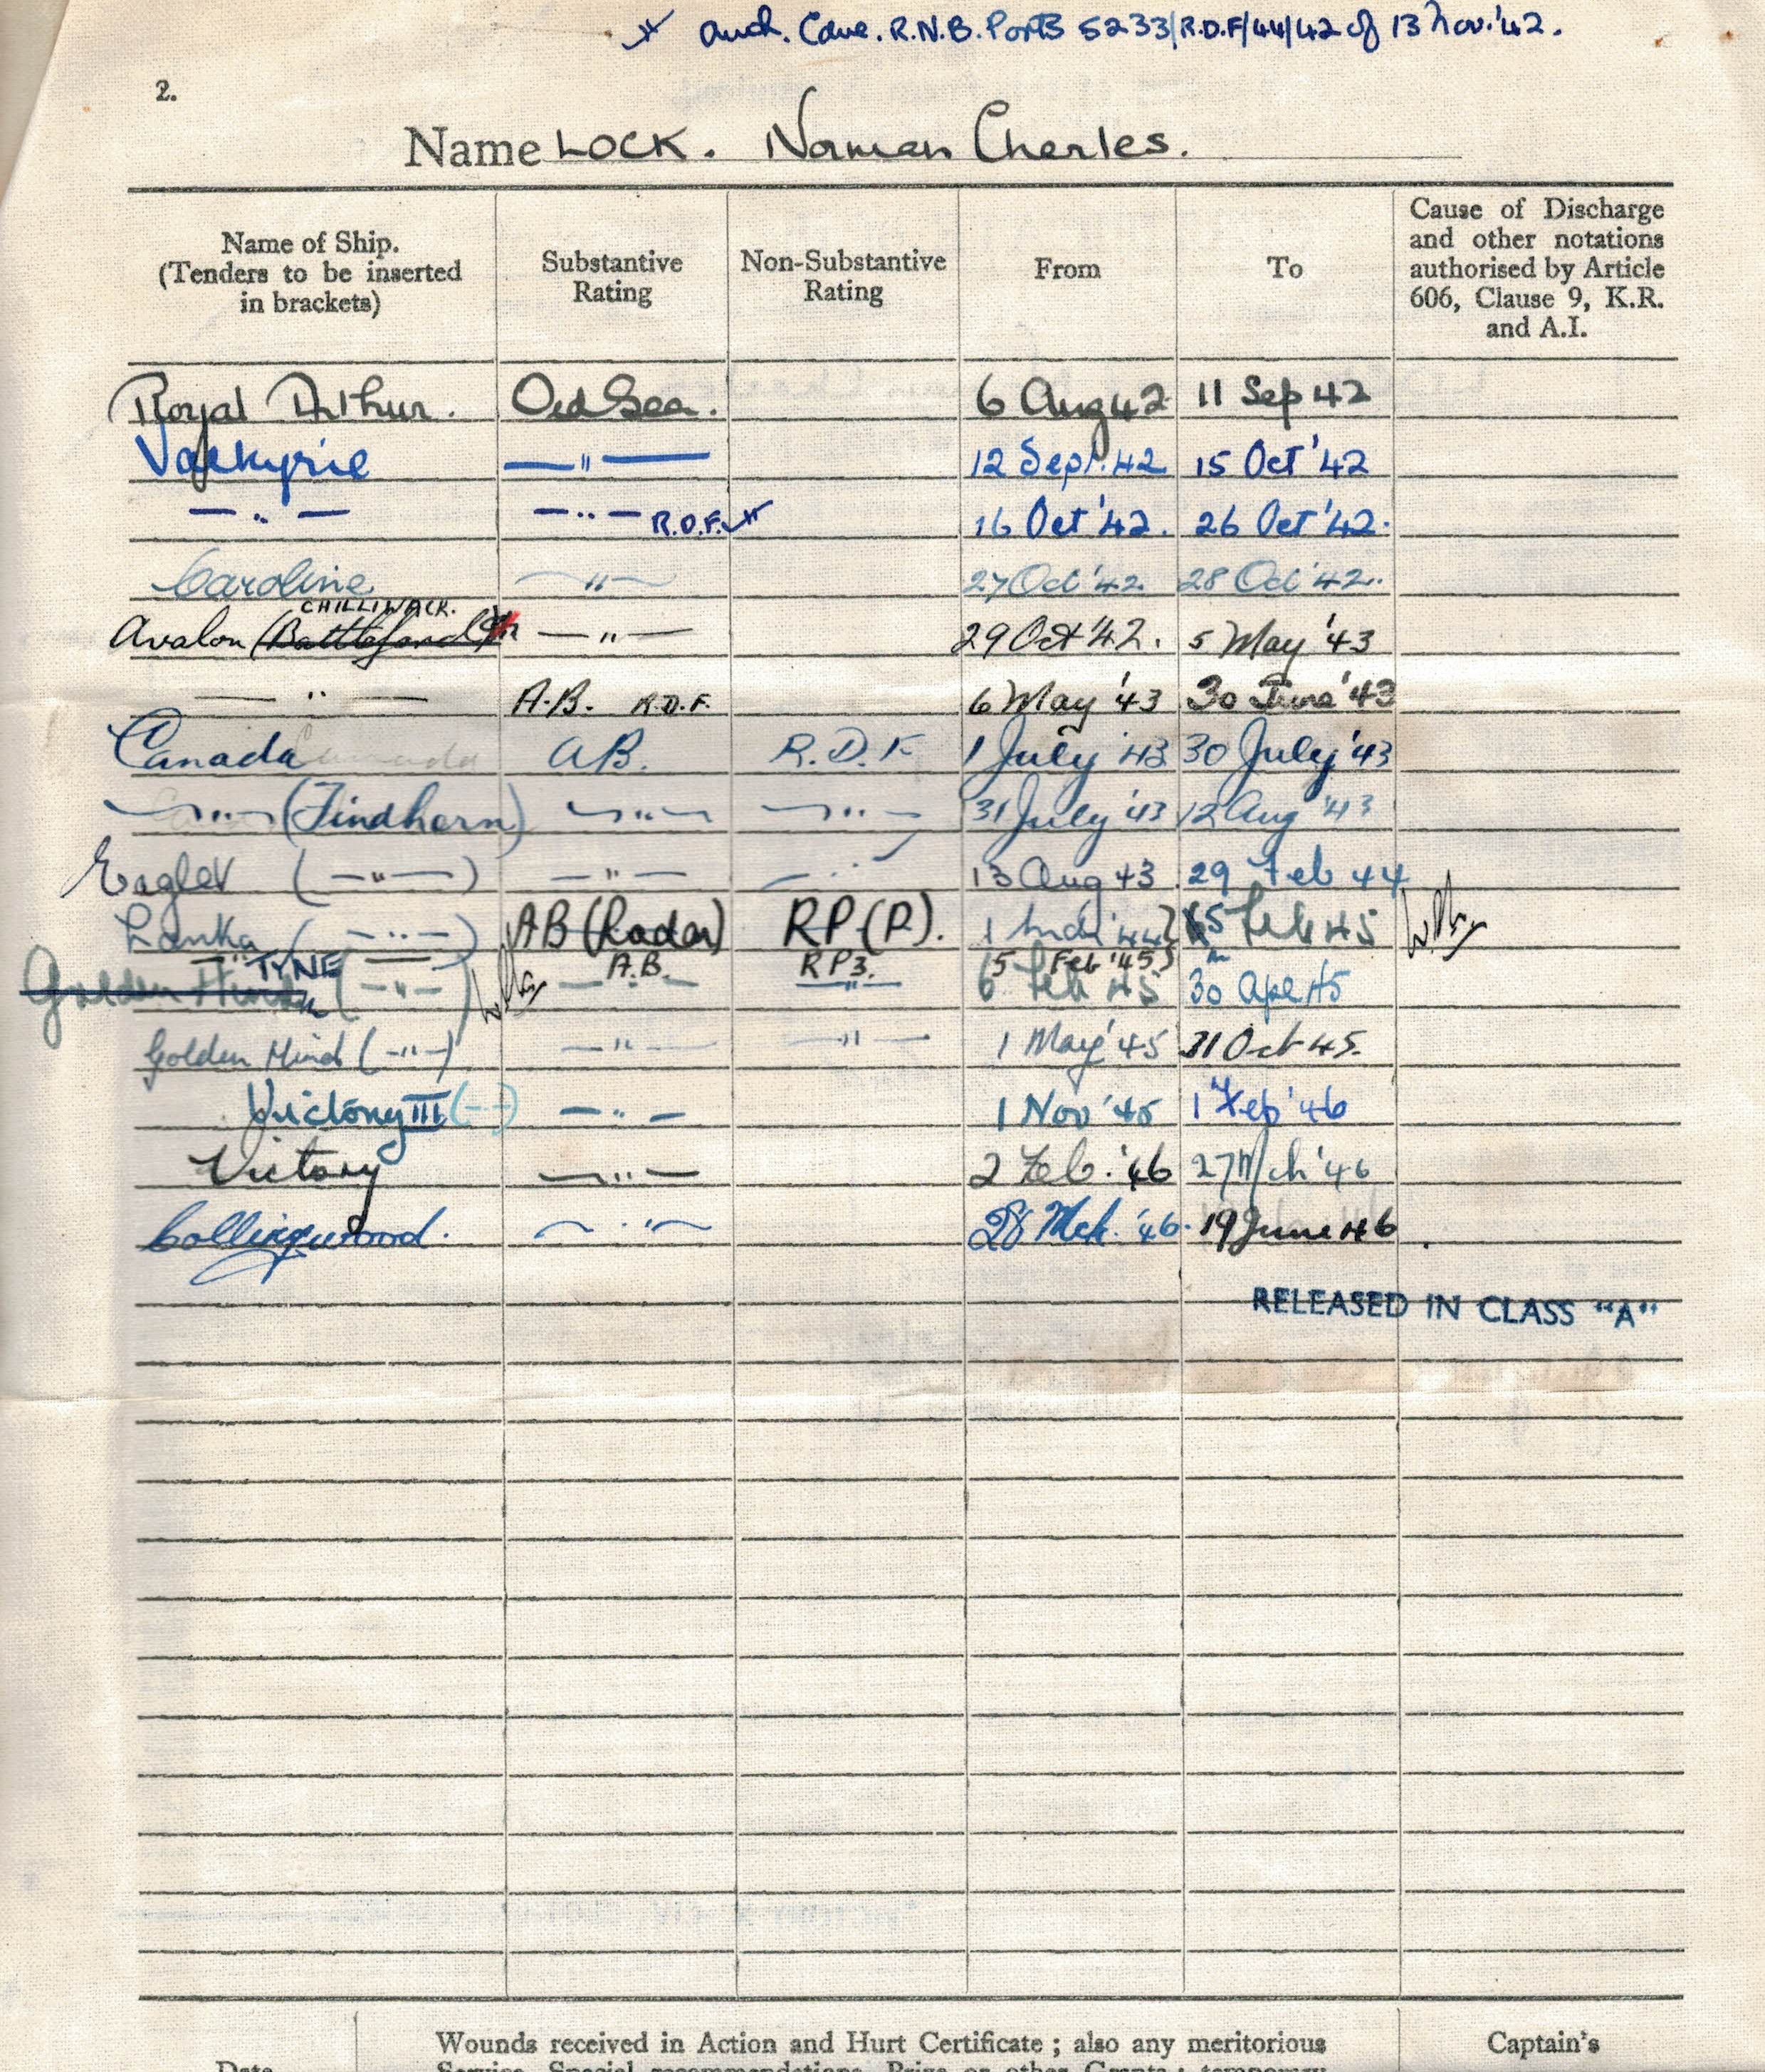 Auth. Cdre. R.N.B. Ports 5233/R.D.F/44/42 of 13 Nov. '42.
2.
Name LOCK. Norman Charles.
Name of Ship. (Tenders to be inserted in brackets) Substantive Rating Non-Substantive Rating From To Cause of Discharge and other notations authorised by Article 606, Clause 9, K.R. and A.I.
Royal Arthur. Ord Sea. 6 Aug 42 11 Sep 42
Valkyrie —"— 12 Sept. 42 15 Oct '42
—"— —"— R.D.F. 16 Oct '42. 26 Oct '42.
Caroline —"— 27 Oct '42. 28 Oct '42.
CHILLIWACK.
Avalon (Battleford) —"— 29 Oct '42. 5 May '43
—"— A.B. R.D.F. 6 May '43 30 June '43
Canada AB. R.D.F 1 July '43 30 July '43
—"— (Findhorn) —"— —"— 31 July '43 12 Aug '43
Eaglet (—"—) —"— —"— 13 Aug 43 29 Feb 44
Lanka (—"—) AB (Radar) RP (R). 1 Mch '44 5 Feb 45
TYNE A.B. RP3. 5 Feb '45
Golden Hind (—"—) —"— —"— 6 Feb 45 30 Apl 45
Golden Hind (—"—) —"— —"— 1 May '45 31 Oct 45.
Victory III (—"—) —"— 1 Nov '45 1 Feb '46
Victory —"— 2 Feb. '46 27 Mch '46
Collingwood. —"— 28 Mch. '46. 19 June 46
RELEASED IN CLASS "A"
Wounds received in Action and Hurt Certificate ; also any meritorious Captain's
Date